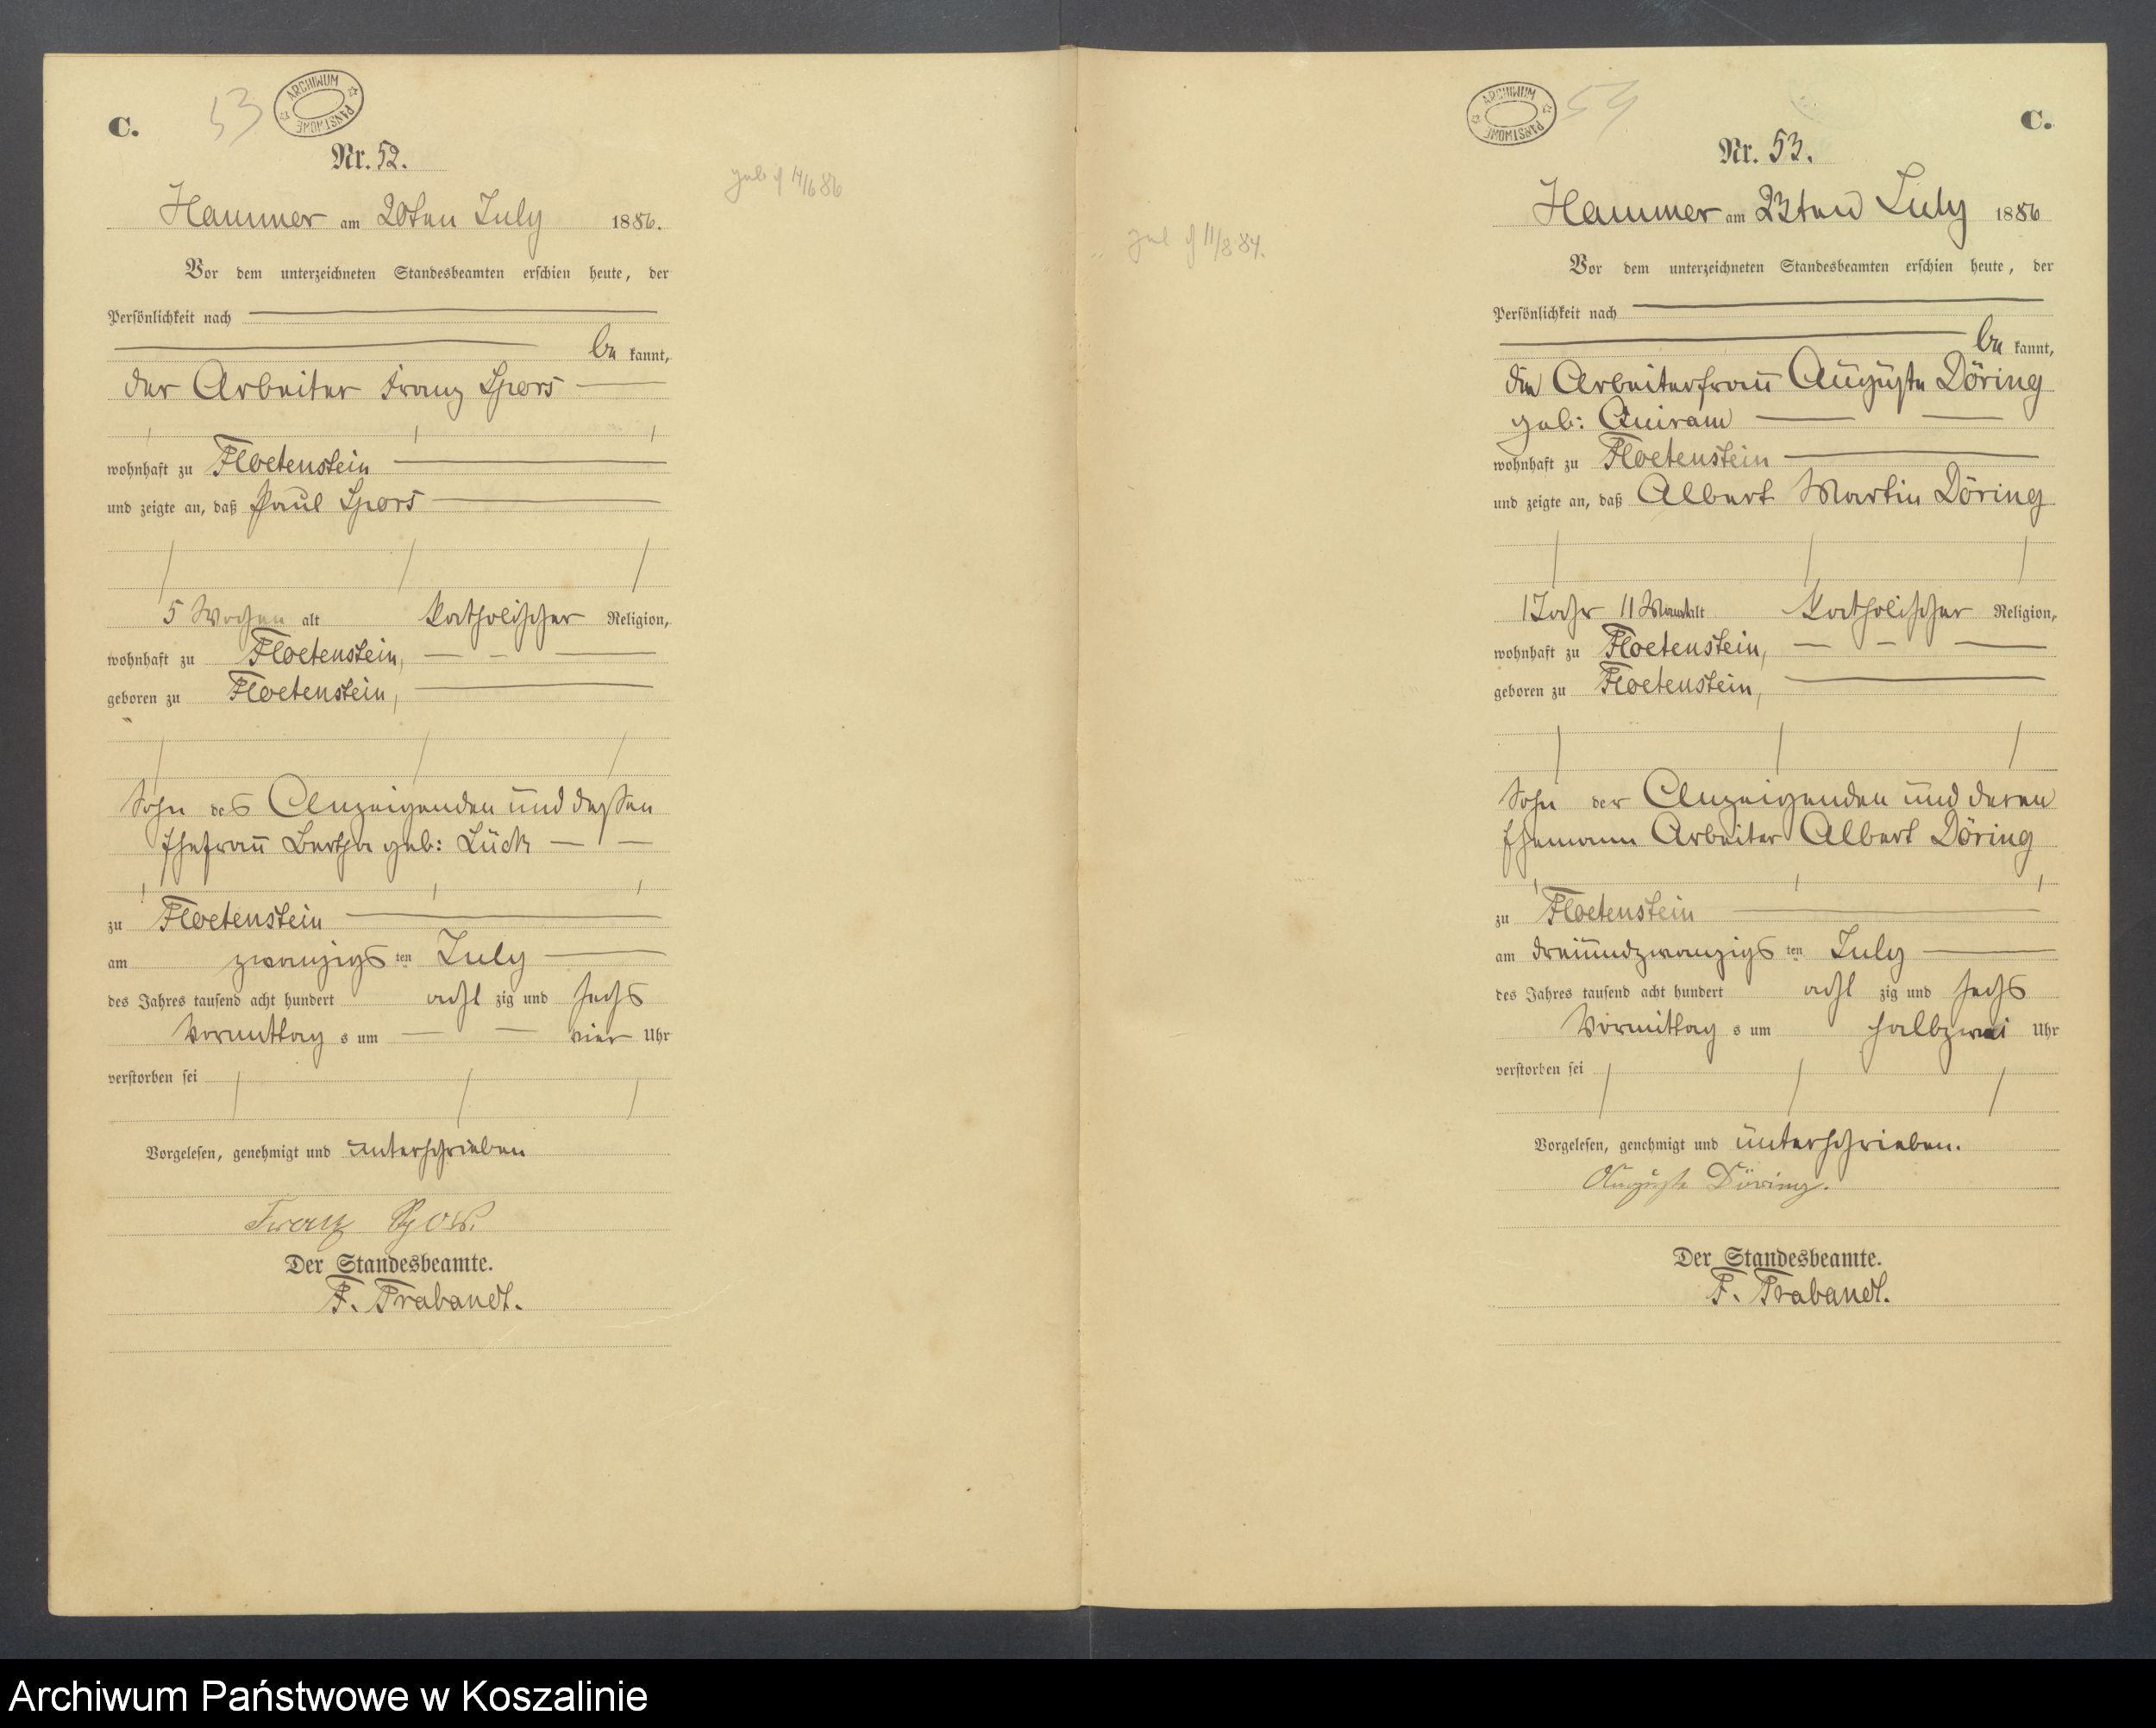 C.
53
ARCHIWUM PAŃSTWOWE
Nr. 52.
Hammer am 20ten July 1886.
Vor dem unterzeichneten Standesbeamten erschien heute, der
Persönlichkeit nach
be kannt,
der Arbeiter Franz Spors
wohnhaft zu Floetenstein
und zeigte an, daß Paul Spors
5 Wochen alt katholischer Religion,
wohnhaft zu Floetenstein,
geboren zu Floetenstein,
Sohn des Anzeigenden und dessen
Ehefrau Bertha geb: Lück
zu Floetenstein
am zwanzigs ten July
des Jahres tausend acht hundert acht zig und sechs
Vormittag s um vier Uhr
verstorben sei
Vorgelesen, genehmigt und unterschrieben
Franz Spors.
Der Standesbeamte.
F. Trabandt.
geb d 14/6 86
geb d 11/8 84.
ARCHIWUM PAŃSTWOWE
54
C.
Nr. 53.
Hammer am 23ten July 1886
Vor dem unterzeichneten Standesbeamten erschien heute, der
Persönlichkeit nach
be kannt,
die Arbeiterfrau Auguste Döring
geb: Quiram
wohnhaft zu Floetenstein
und zeigte an, daß Albert Martin Döring
1 Jahr 11 Monat alt katholischer Religion,
wohnhaft zu Floetenstein,
geboren zu Floetenstein,
Sohn der Anzeigenden und deren
Ehemann Arbeiter Albert Döring
zu Floetenstein
am dreiundzwanzigs ten July
des Jahres tausend acht hundert acht zig und sechs
Vormittag s um halbzwei Uhr
verstorben sei
Vorgelesen, genehmigt und unterschrieben.
Auguste Döring.
Der Standesbeamte.
F. Trabandt.
Archiwum Państwowe w Koszalinie